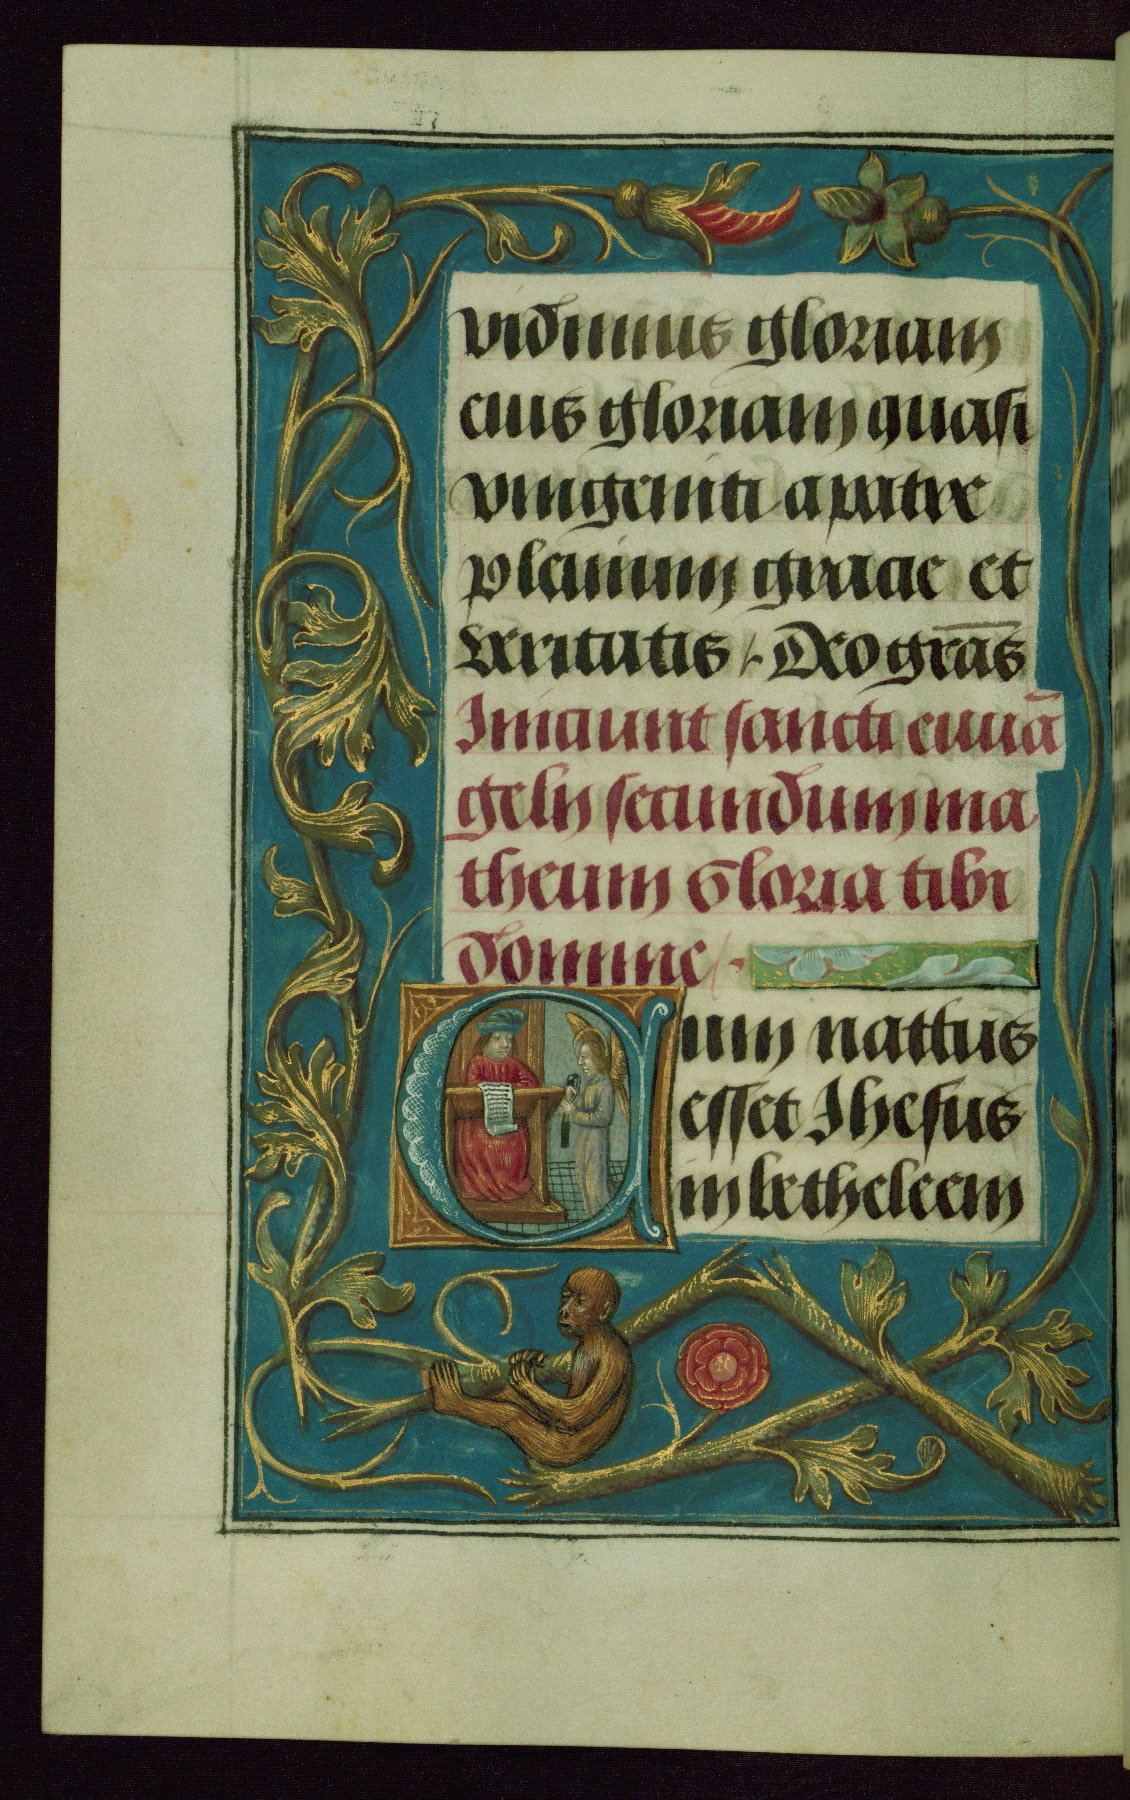 vidimus gloriam
eius gloriam quasi
vnigeniti a patre
plenium gracie et
veritatis / Deo grãs
Iniciunt sancti euuã
gelij secundum ma
theum Gloria tibi
domine
Cum nattus
esset Ihesus
in betheleem